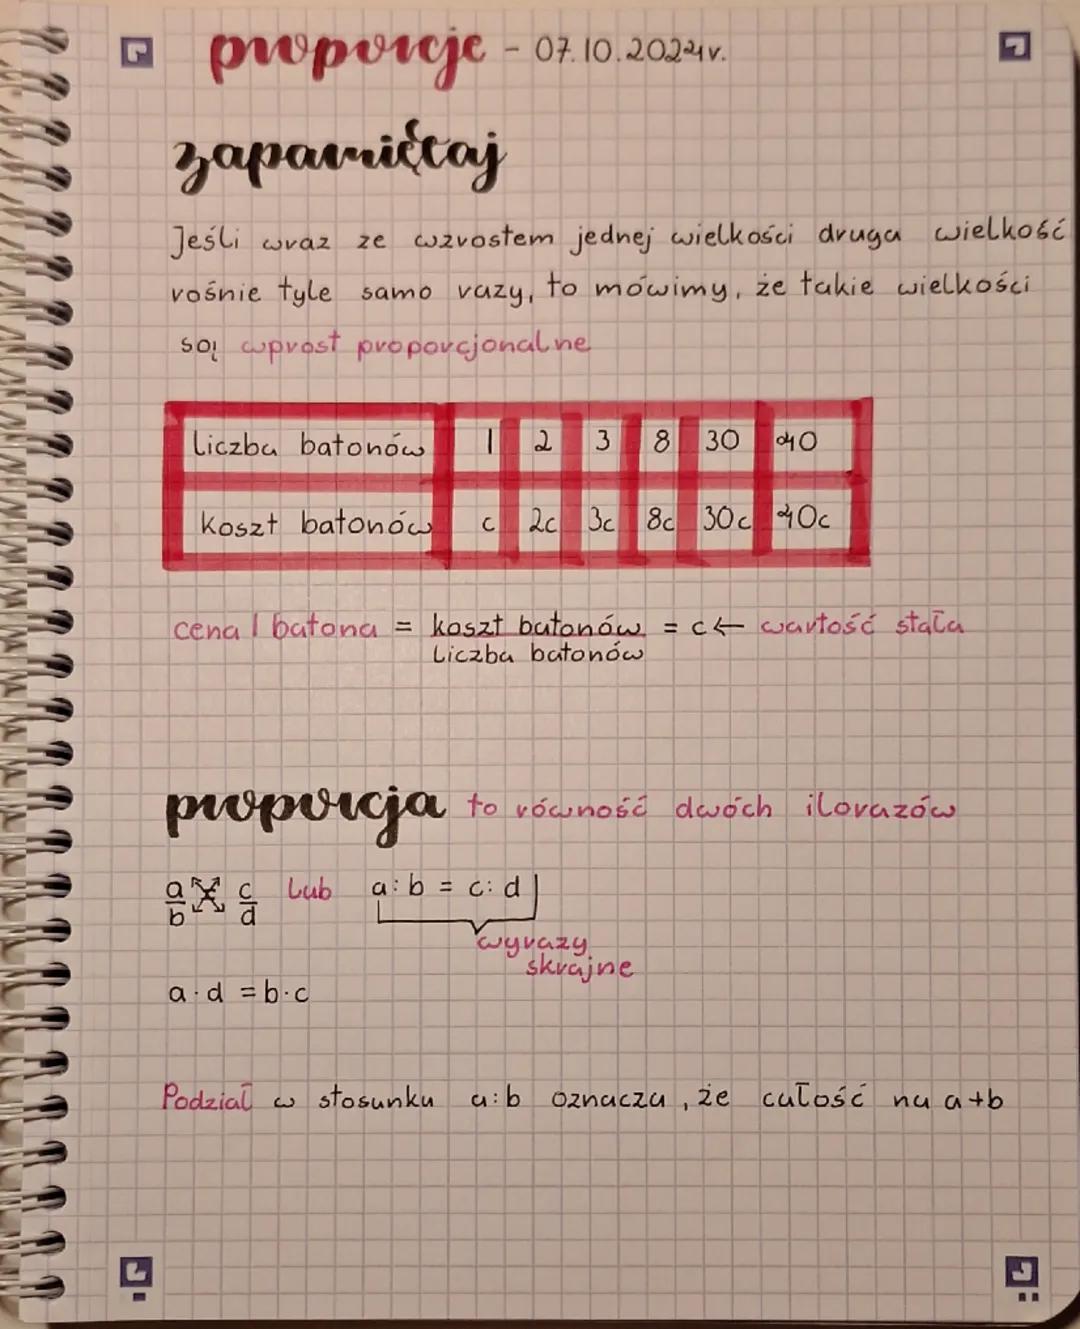 proporcje - 07.10.2024r.
zapamiętaj
Jeśli wraz ze wzrostem jednej wielkości druga wielkość
rośnie tyle samo razy, to mówimy, że takie wielkości
są wprost proporcjonalne
liczba batonów 1 2 3 8 30 40
koszt batonów c 2c 3c 8c 30c 40c
cena 1 batona = koszt batonów = c ← wartość stała
liczba batonów
proporcja to równość dwóch ilorazów
a c lub a:b = c:d
b d
wyrazy
skrajne
a·d = b·c
Podział w stosunku a:b oznacza, że całość na a+b